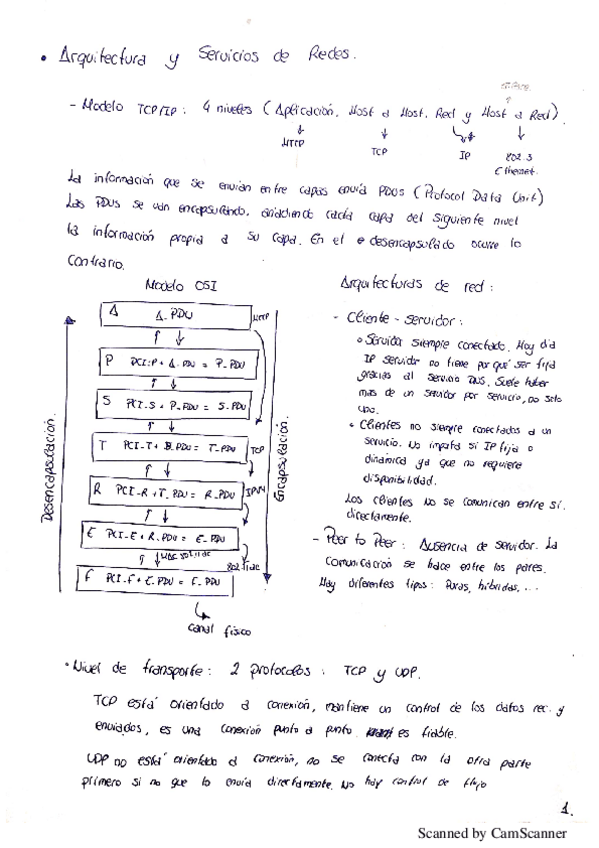 • Arquitectura y Servicios de Redes.
- Modelo TCP/IP : 4 niveles (Aplicación, Host a Host, Red y Host a Red).
HTTP
TCP
IP
802.3
Ethernet.
La información que se envian entre capas envía PDUS (Protocol Data Unit)
Las PDUS se van encapsulando, añadiendo cada capa del siguiente nivel
la información propia a su capa. En el e desencapsulado ocurre lo
contrario.
Modelo OSI
Desencapsulación.
Encapsulación.
A A_PDU
HTTP
P PCI_P + A_PDU = P_PDU
S PCI_S + P_PDU = S_PDU
T PCI_T + S_PDU = T_PDU
TCP
R PCI_R + T_PDU = R_PDU
IPV4
E PCI_E + R_PDU = E_PDU
802.11ac
F PCI_F + E_PDU = F_PDU
canal físico
Arquitecturas de red :
- Cliente - servidor :
Servidor siempre conectado. Hoy dia
IP servidor no tiene por qué ser fija
gracias al servicio DNS. Suele haber
mas de un servidor por servicio, no solo
uno.
Clientes no siempre conectados a un
servicio. No importa si IP fija o
dinámica ya que no requiere
disponibilidad.
Los clientes no se comunican entre sí
directamente.
- Peer to Peer : Ausencia de servidor. La
comunicación se hace entre los pares.
Hay diferentes tipos : Puras, híbridas, ...
• Nivel de transporte : 2 protocolos : TCP y UDP.
TCP está orientado a conexión, mantiene un control de los datos rec. y
enviados, es una conexión punto a punto es fiable.
UDP no está orientado a conexión, no se conecta con la otra parte
primero si no que lo envía directamente. No hay control de flujo
1.
Scanned by CamScanner